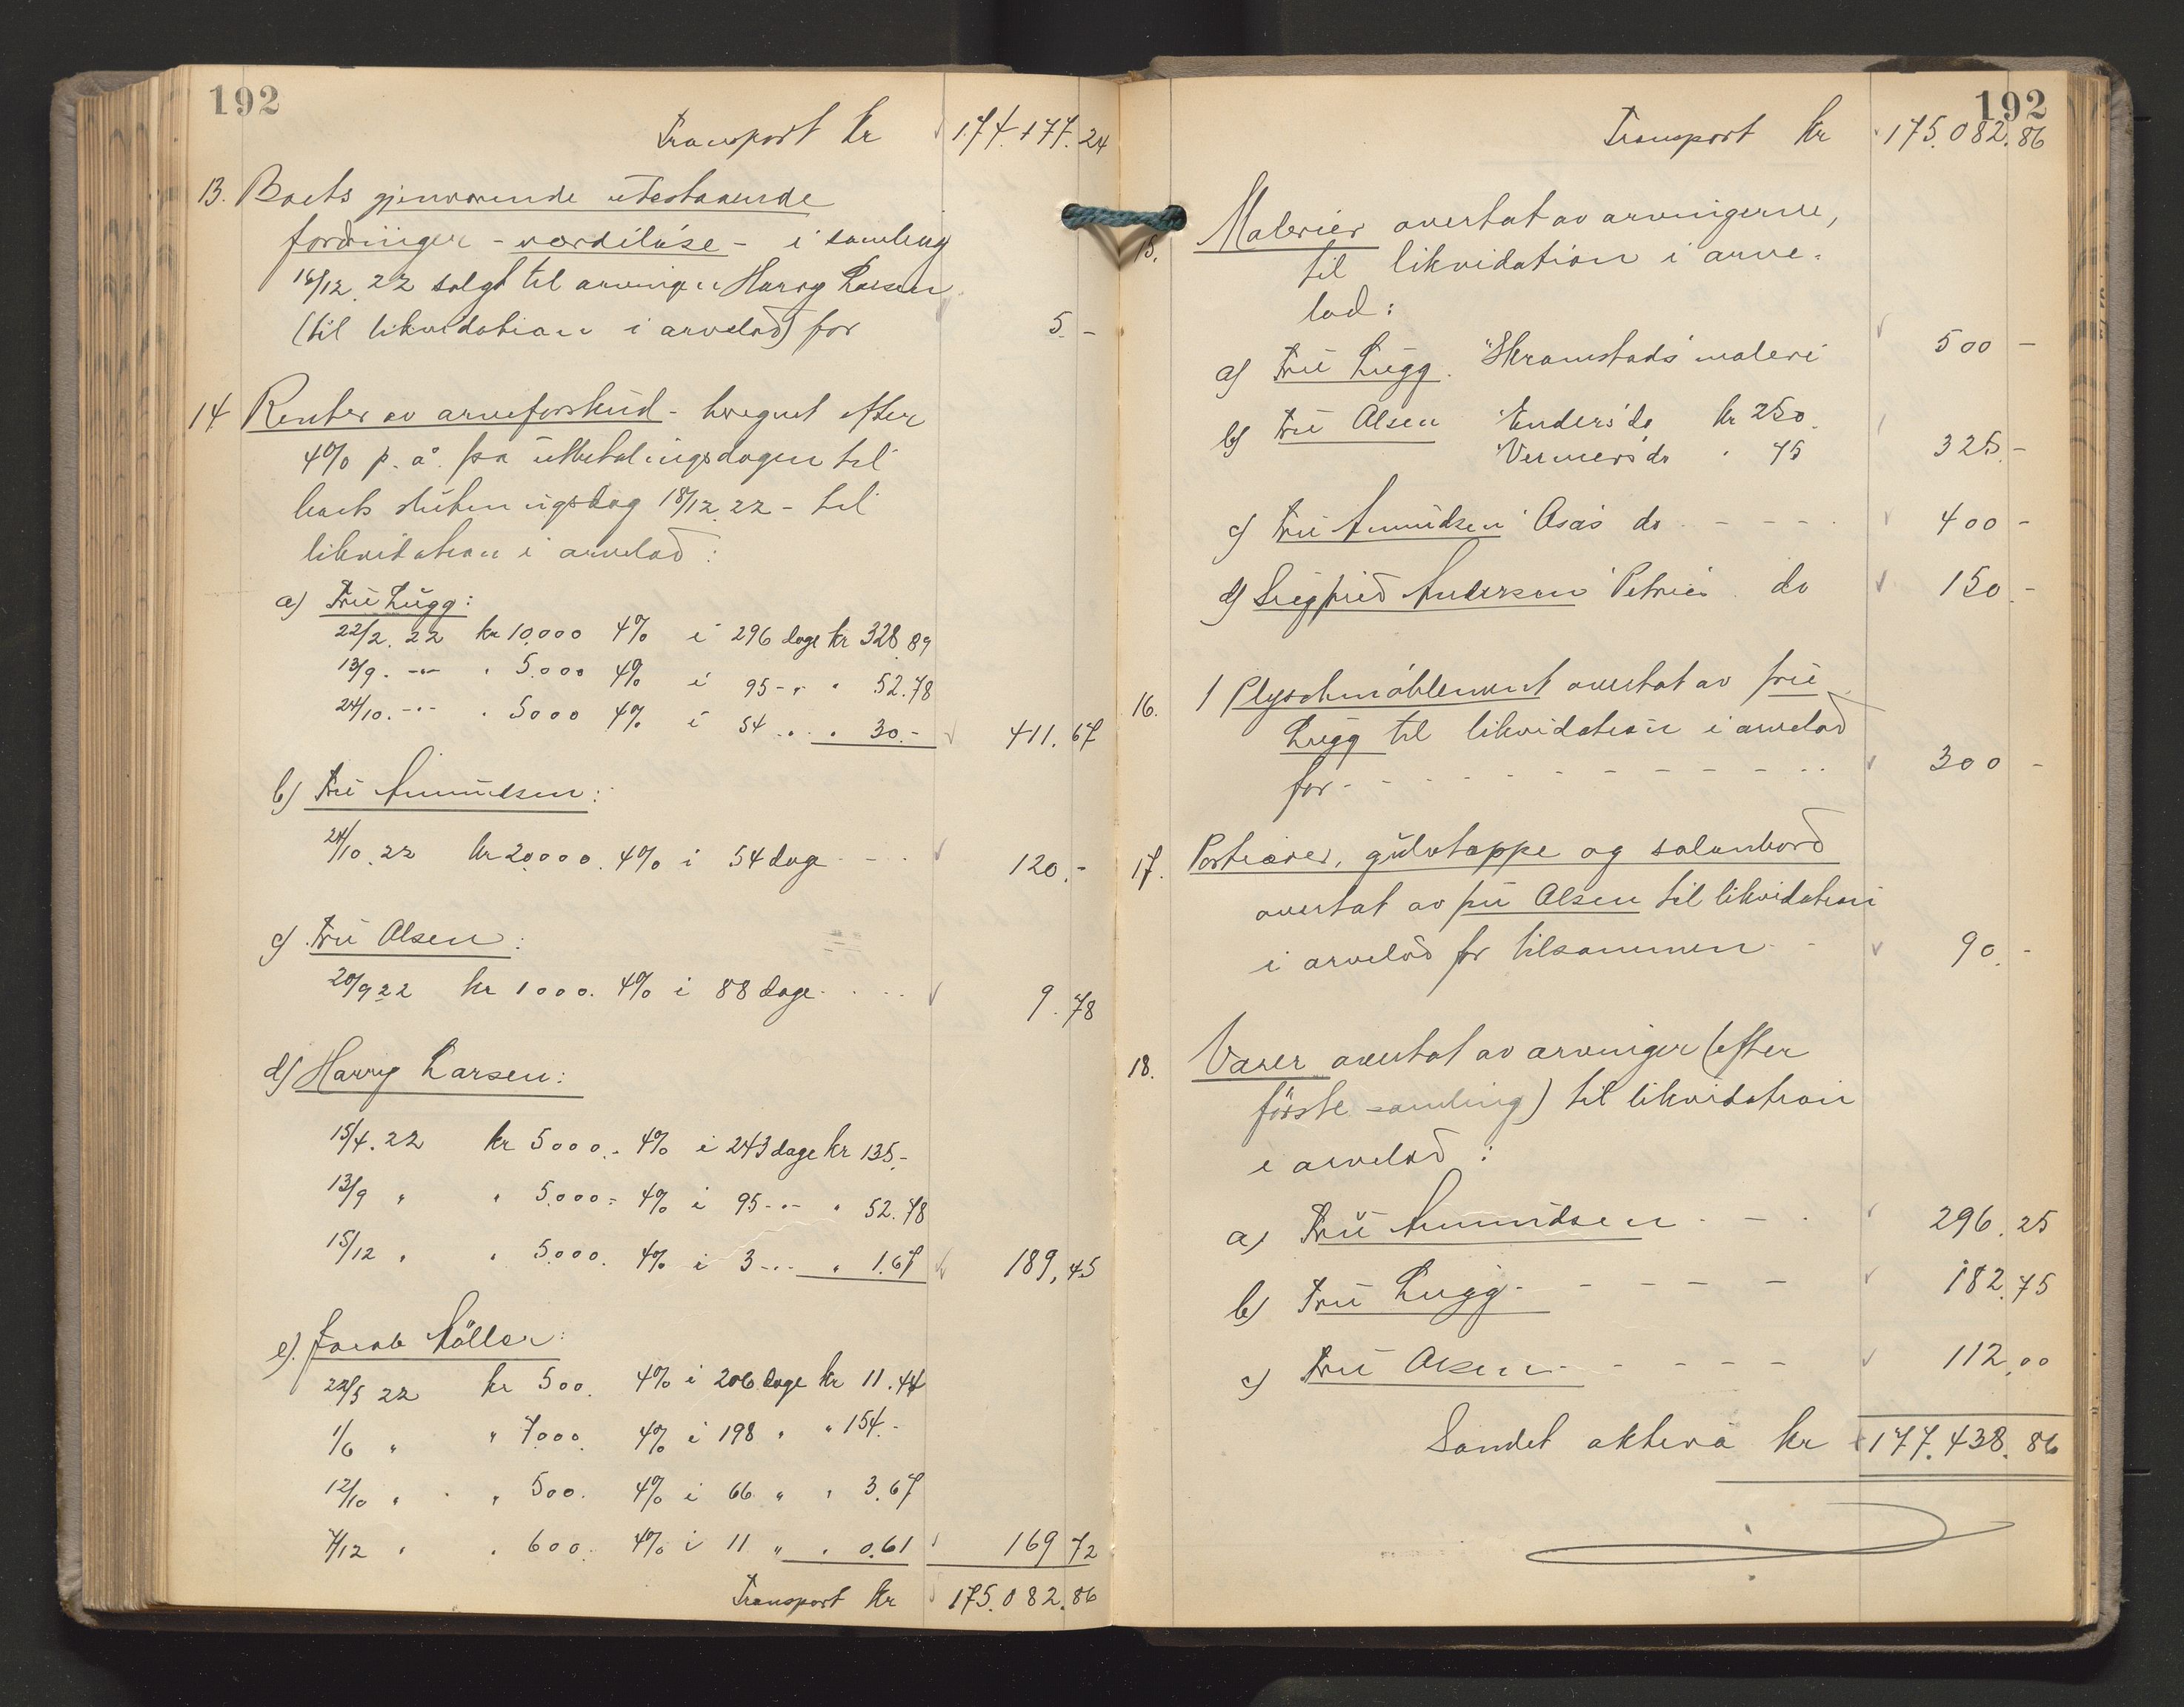 192
Transport kr 174.177.24
13. Boets gjenværende utestaaende
fordringer - værdiløse - i samling
16/12 22 solgt til arvingen Harry Larsen
(til likvidation i arvelod) for 5.-
14. Renter av arveforskud - beregnet efter
4% p. a. fra utbetalingsdagen til
boets slutningsdag 18/12 22 - til
likvidation i arvelod:
a) Fru Lugg:
22/2. 22 kr 10.000 4% i 296 dage kr 328.89
13/9. -"- " 5.000 4% i 95 -"- " 52.78
24/10. -"- " 5000 4% i 54 " " 30.- 411.67
b) Fru Amundsen:
24/10. 22 kr 20.000. 4% i 54 dage - - 120.-
c) Fru Olsen:
20/9 22 kr 1000. 4% i 88 dage - - 9.78
d) Harry Larsen:
15/4. 22 kr 5000.- 4% i 243 dage kr 135.-
13/9 " " 5.000.- 4% i 95 -"- " 52.78
15/12 " " 5.000. 4% i 3 -"- " 1.67 189,45
e) Jacob Möller:
22/5 22 kr 500. 4% i 206 dage kr 11.44
1/6 " " 7.000. 4% i 198 " " 154.-
12/10 " " 500. 4% i 66 " " 3.67
7/12 " " 600. 4% i 11 " " 0.61 169 72
Transport kr 175.082.86
192
Transport kr 175.082.86
15. Malerier overtat av arvingerne,
til likvidation i arve-
lod:
a) Fru Lugg. "Skramstads" maleri 500 -
b) Fru Olsen "Enders" do kr 250.
"Vermers" do " 75 325.-
c) Fru Amundsen "Osas" do - - - - 400 -
d) Siegfried Andersen "Petries" do 150.-
16. 1 Plyschmöblement overtat av fru
Lugg til likvidation i arvelod
for - - - - - - - - - 300 -
17. Portierer, gulvteppe og salonbord
overtat av fru Olsen til likvidation
i arvelod for tilsammen - - 90.-
18. Varer overtat av arvinger (efter
første samling) til likvidation
i arvelod:
a) Fru Amundsen - - - 296.25
b) Fru Lugg - - - - - 182.75
c) Fru Olsen - - - - - 112.00
Samlet aktiva kr 177.438.86